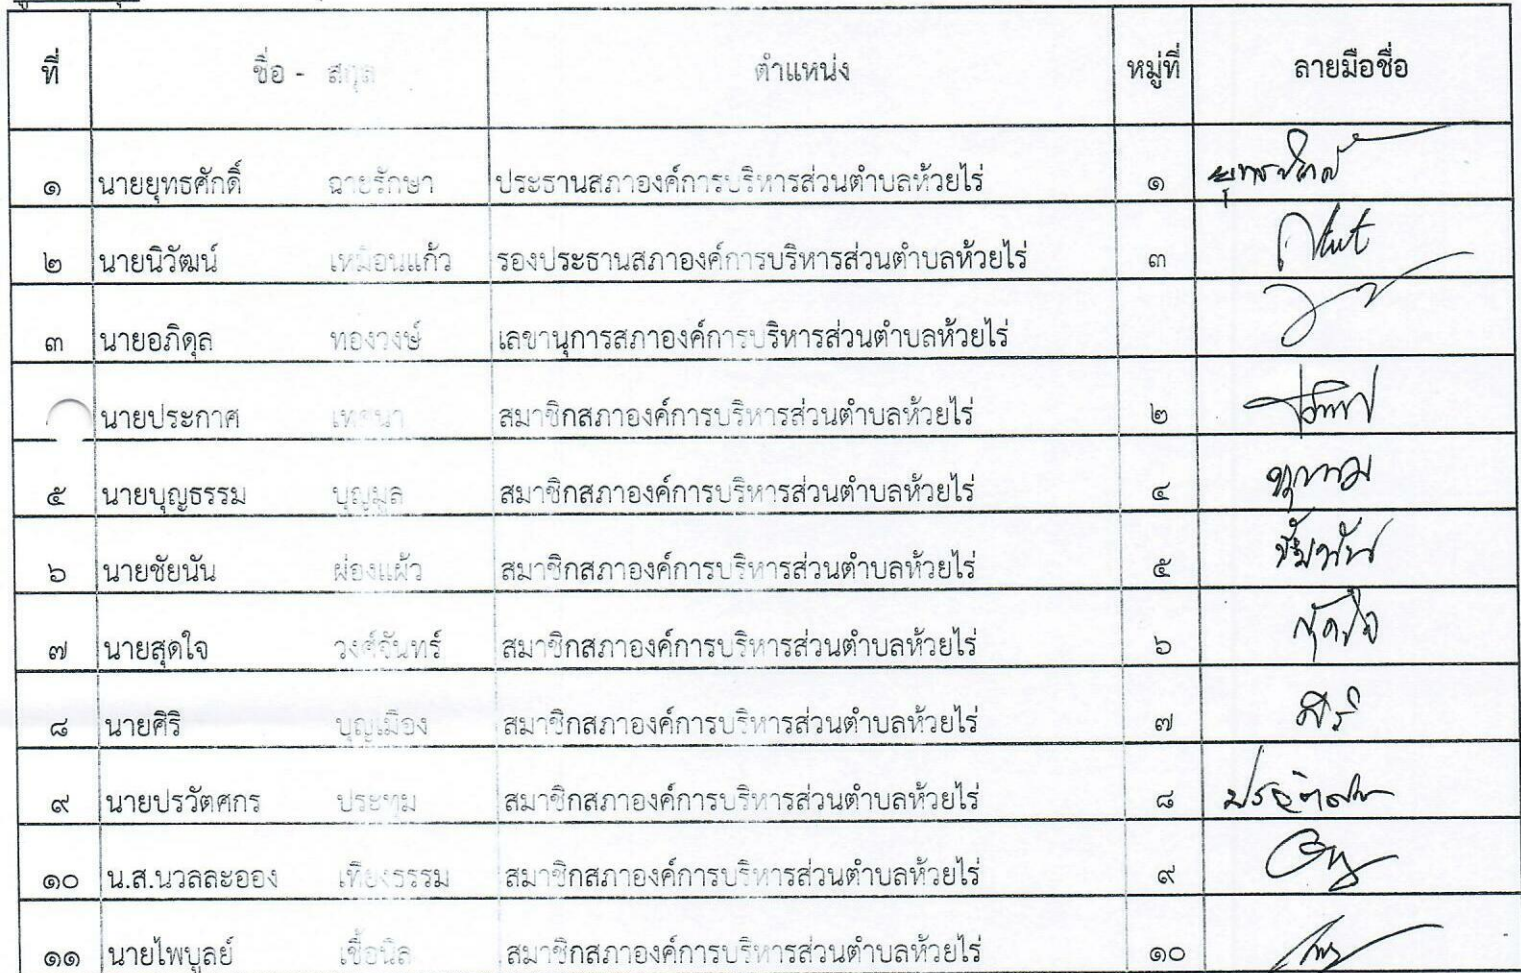 ที่ ชื่อ - สกุล ตำแหน่ง หมู่ที่ ลายมือชื่อ
๑ นายยุทธศักดิ์ ฉายรักษา ประธานสภาองค์การบริหารส่วนตำบลห้วยไร่ ๑ ยุทธศักดิ์
๒ นายนิวัฒน์ เหมือนแก้ว รองประธานสภาองค์การบริหารส่วนตำบลห้วยไร่ ๓
๓ นายอภิดุล ทองวงษ์ เลขานุการสภาองค์การบริหารส่วนตำบลห้วยไร่
นายประกาศ สมาชิกสภาองค์การบริหารส่วนตำบลห้วยไร่ ๒
๕ นายบุญธรรม บุญมูล สมาชิกสภาองค์การบริหารส่วนตำบลห้วยไร่ ๔
๖ นายชัยนัน ผ่องแผ้ว สมาชิกสภาองค์การบริหารส่วนตำบลห้วยไร่ ๕
๗ นายสุดใจ วงศ์จันทร์ สมาชิกสภาองค์การบริหารส่วนตำบลห้วยไร่ ๖ สุดใจ
๘ นายศิริ บุญเมือง สมาชิกสภาองค์การบริหารส่วนตำบลห้วยไร่ ๗ ศิริ
๙ นายปรวัตศกร ประทุม สมาชิกสภาองค์การบริหารส่วนตำบลห้วยไร่ ๘
๑๐ น.ส.นวลละออง เที่ยงธรรม สมาชิกสภาองค์การบริหารส่วนตำบลห้วยไร่ ๙
๑๑ นายไพบูลย์ เชื้อนิล สมาชิกสภาองค์การบริหารส่วนตำบลห้วยไร่ ๑๐